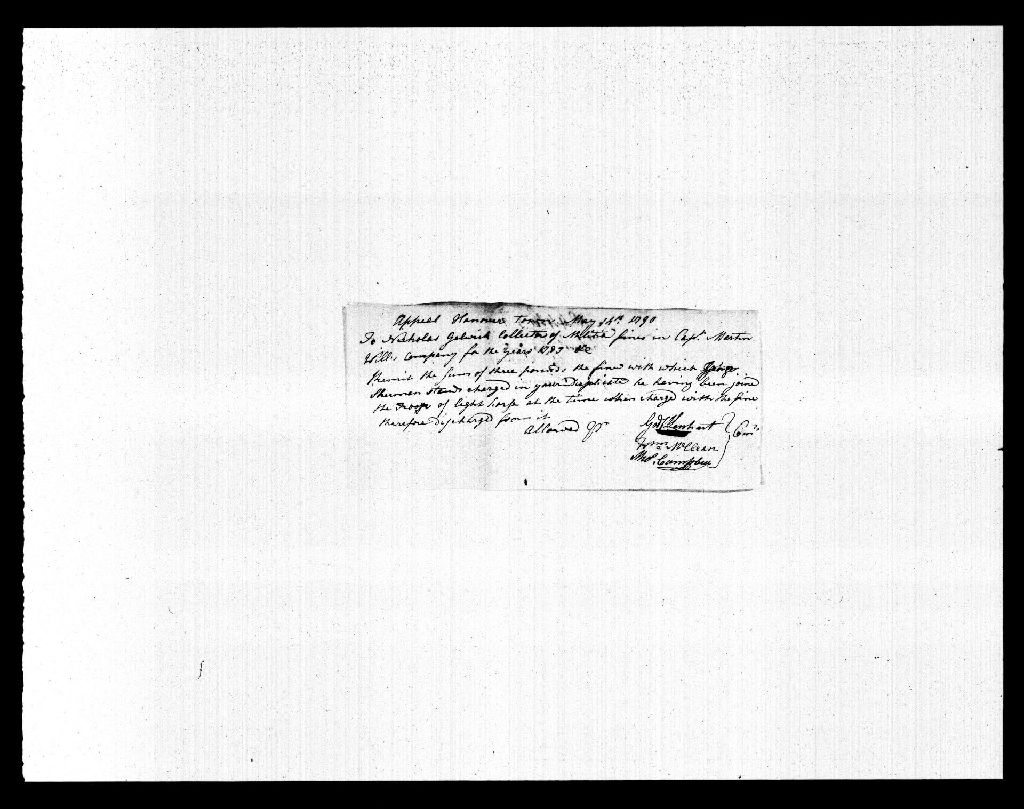 Appeal Hanover Town May 14th 1790
To Nicholas Gelwick Collector of Militia fines in Capt. Martin
Will's Company for the Years 1787 &c
Remit the Sum of three pounds the fine with which
Sherman stands charged in your Duplicate he having been joined
the troop of light horse at the time when charged with the fine
therefore discharged from it
allowed pr
Wm. McClean